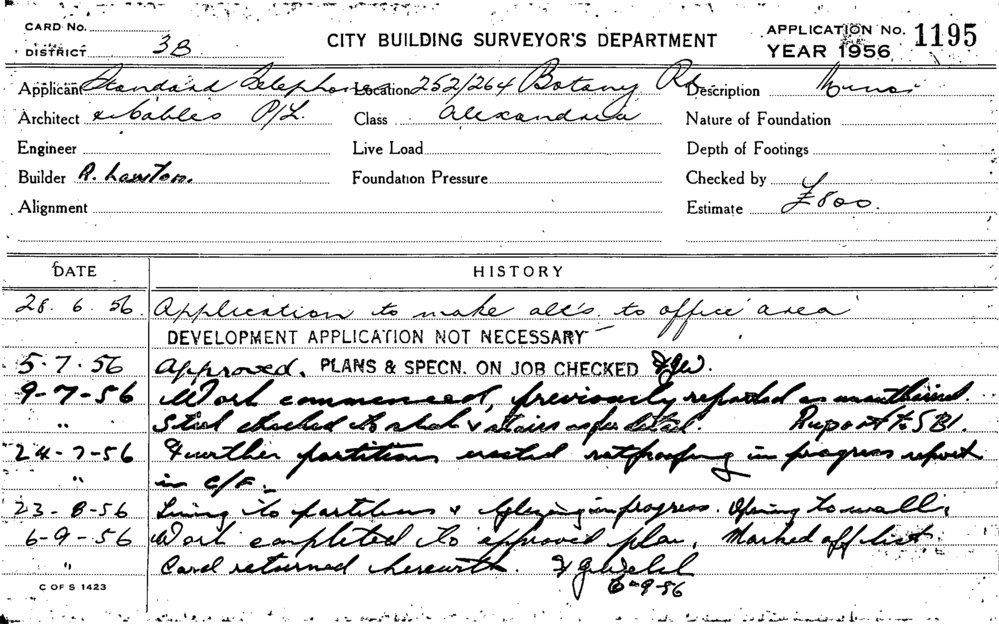 CARD No.
DISTRICT 3B
CITY BUILDING SURVEYOR'S DEPARTMENT
APPLICATION No. 1195
YEAR 1956
Applicant Standard Telephones Location 252/264 Botany Rd Description Minor
Architect & Cables P/L. Class Alexandria Nature of Foundation
Engineer Live Load Depth of Footings
Builder R. Lawton. Foundation Pressure Checked by
Alignment Estimate £800.
DATE HISTORY
28.6.56 Application to make alt's. to office area
DEVELOPMENT APPLICATION NOT NECESSARY
5.7.56 Approved. PLANS & SPECN. ON JOB CHECKED FJW.
9-7-56 Work commenced, previously reported as unauthorised.
" Steel checked to slab & stairs as per detail. Report to SBI.
24-7-56 Further partitions erected ratproofing in progress report
" in C/F.
23-8-56 Lining to partitions & glazing in progress. to walls
6-9-56 Work completed to approved plan. Marked off list.
" Card returned herewith. FJ Welsh
6-9-56
C OF S 1423